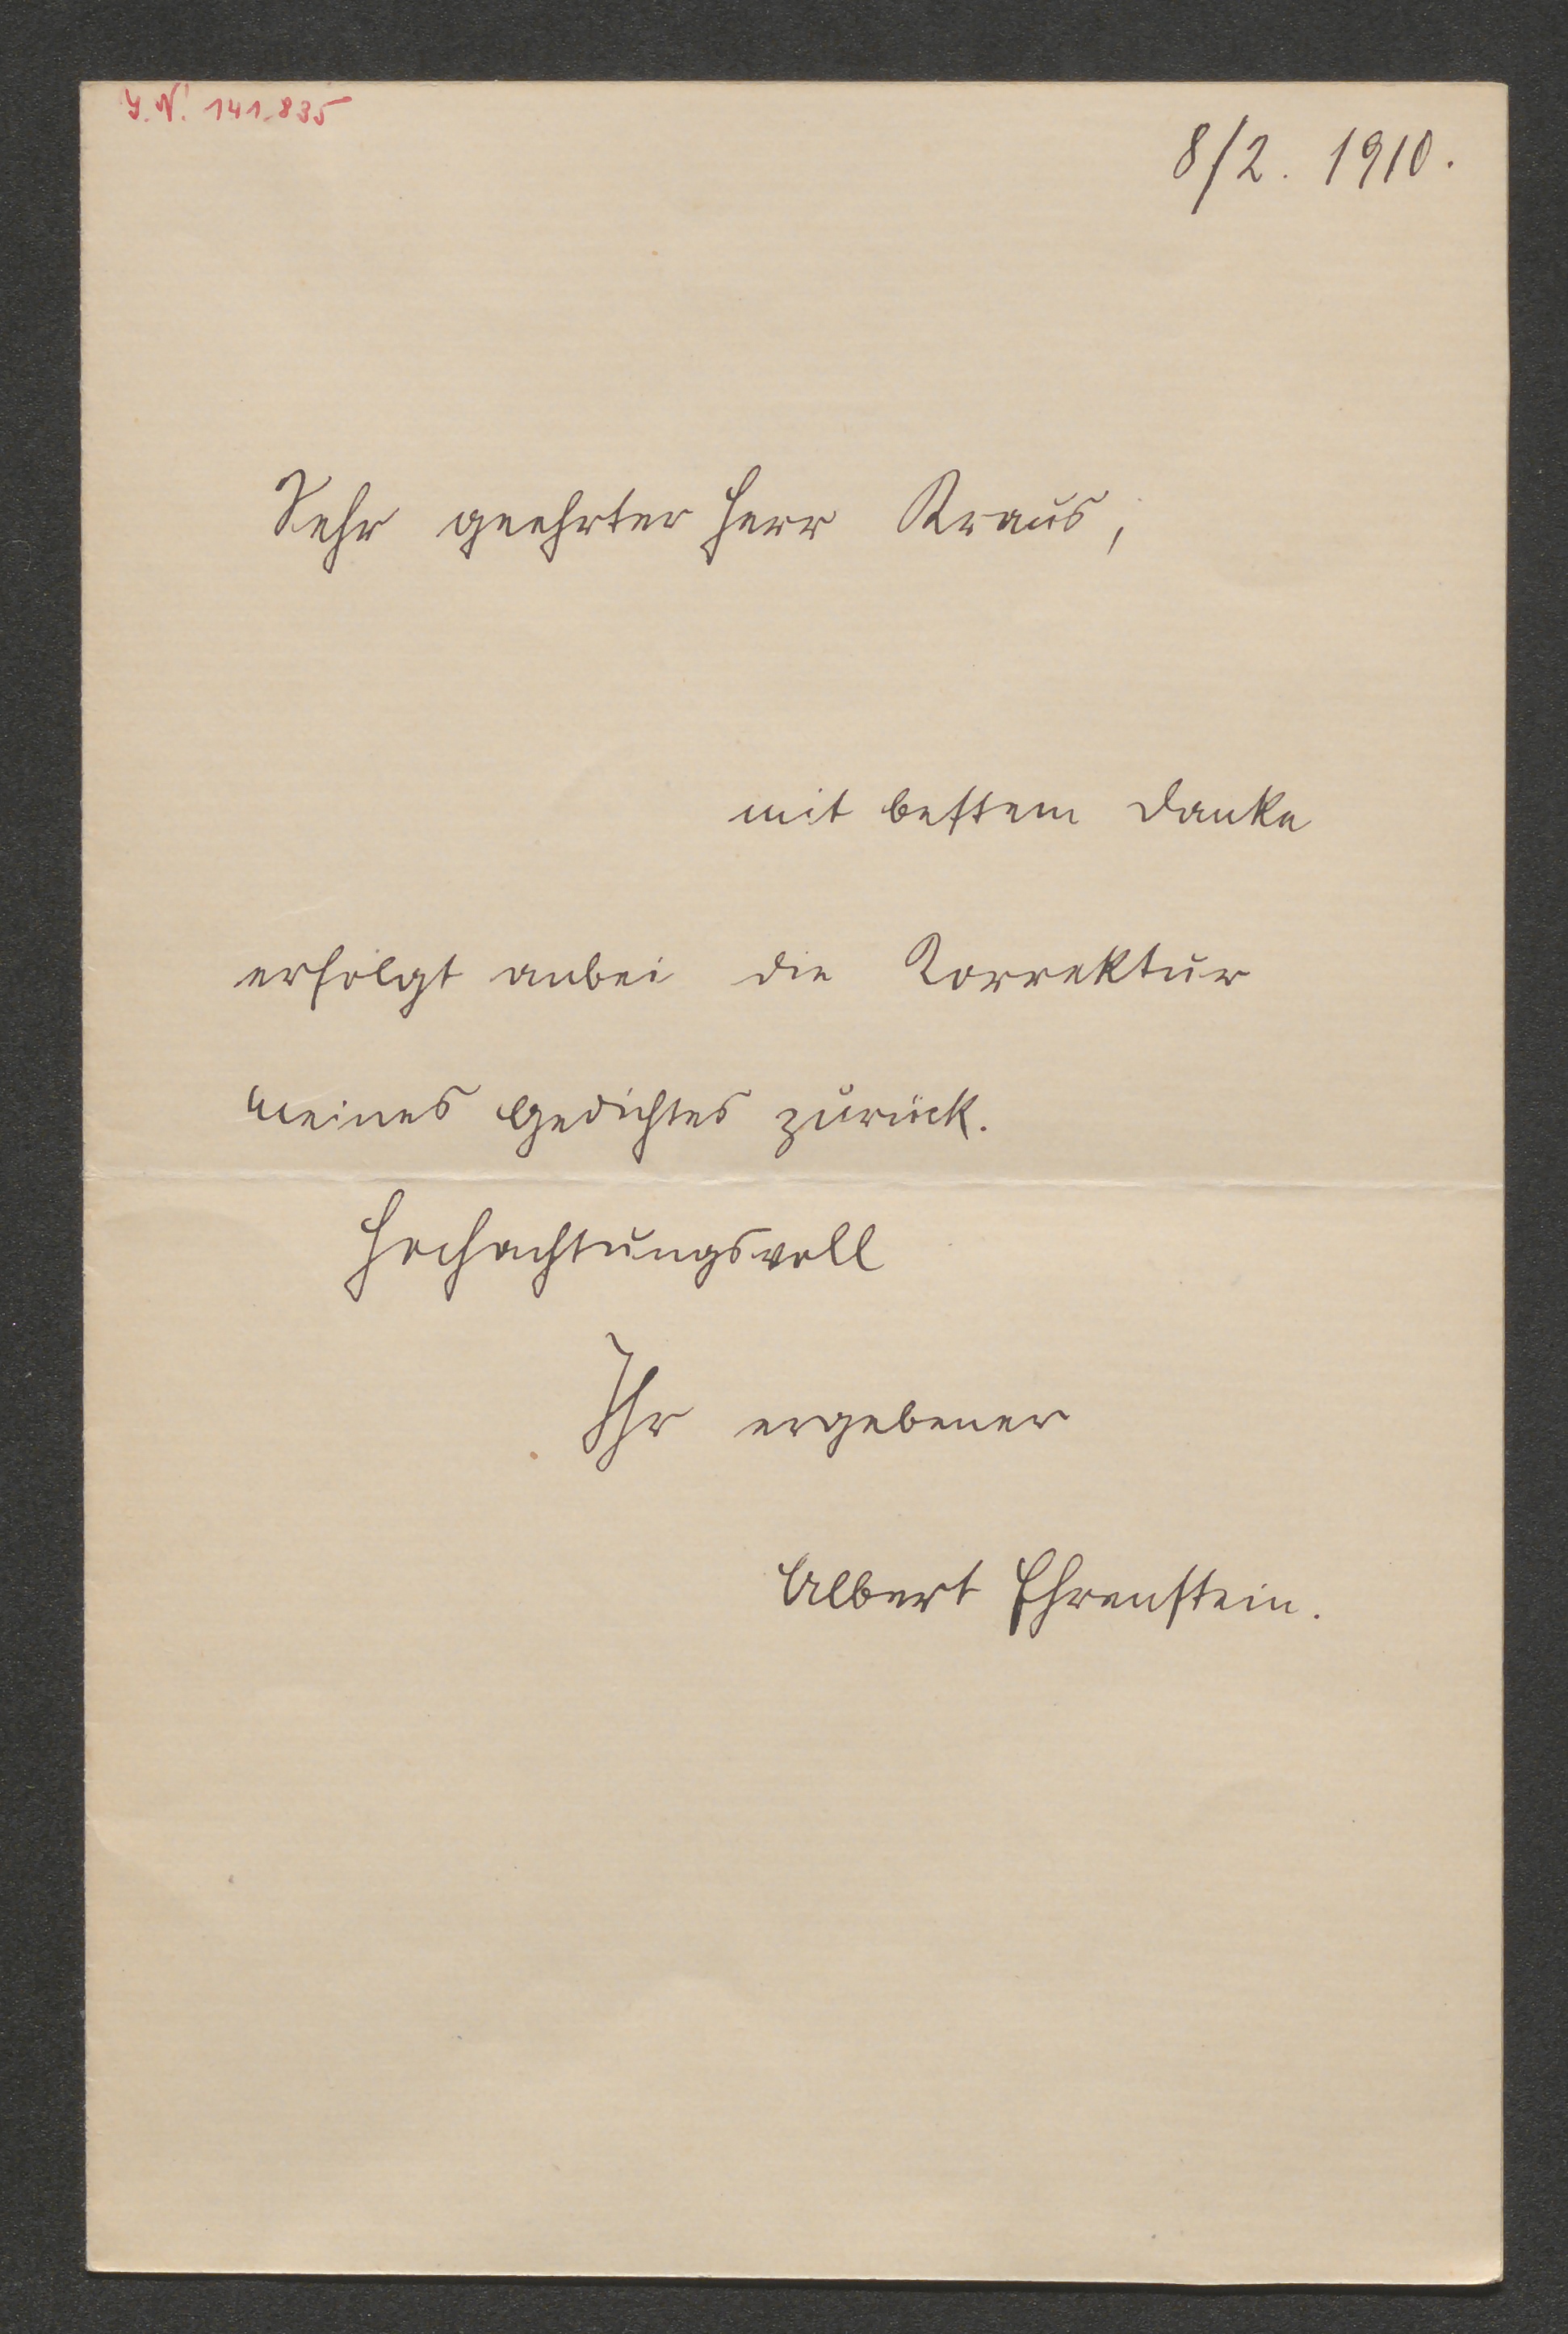 J. N. 141.835
8/2. 1910.
Sehr geehrter Herr Kraus,
mit bestem Danke
erfolgt anbei die Korrektur
meines Gedichtes zurück.
Hochachtungsvoll
Ihr ergebener
Albert Ehrenstein.